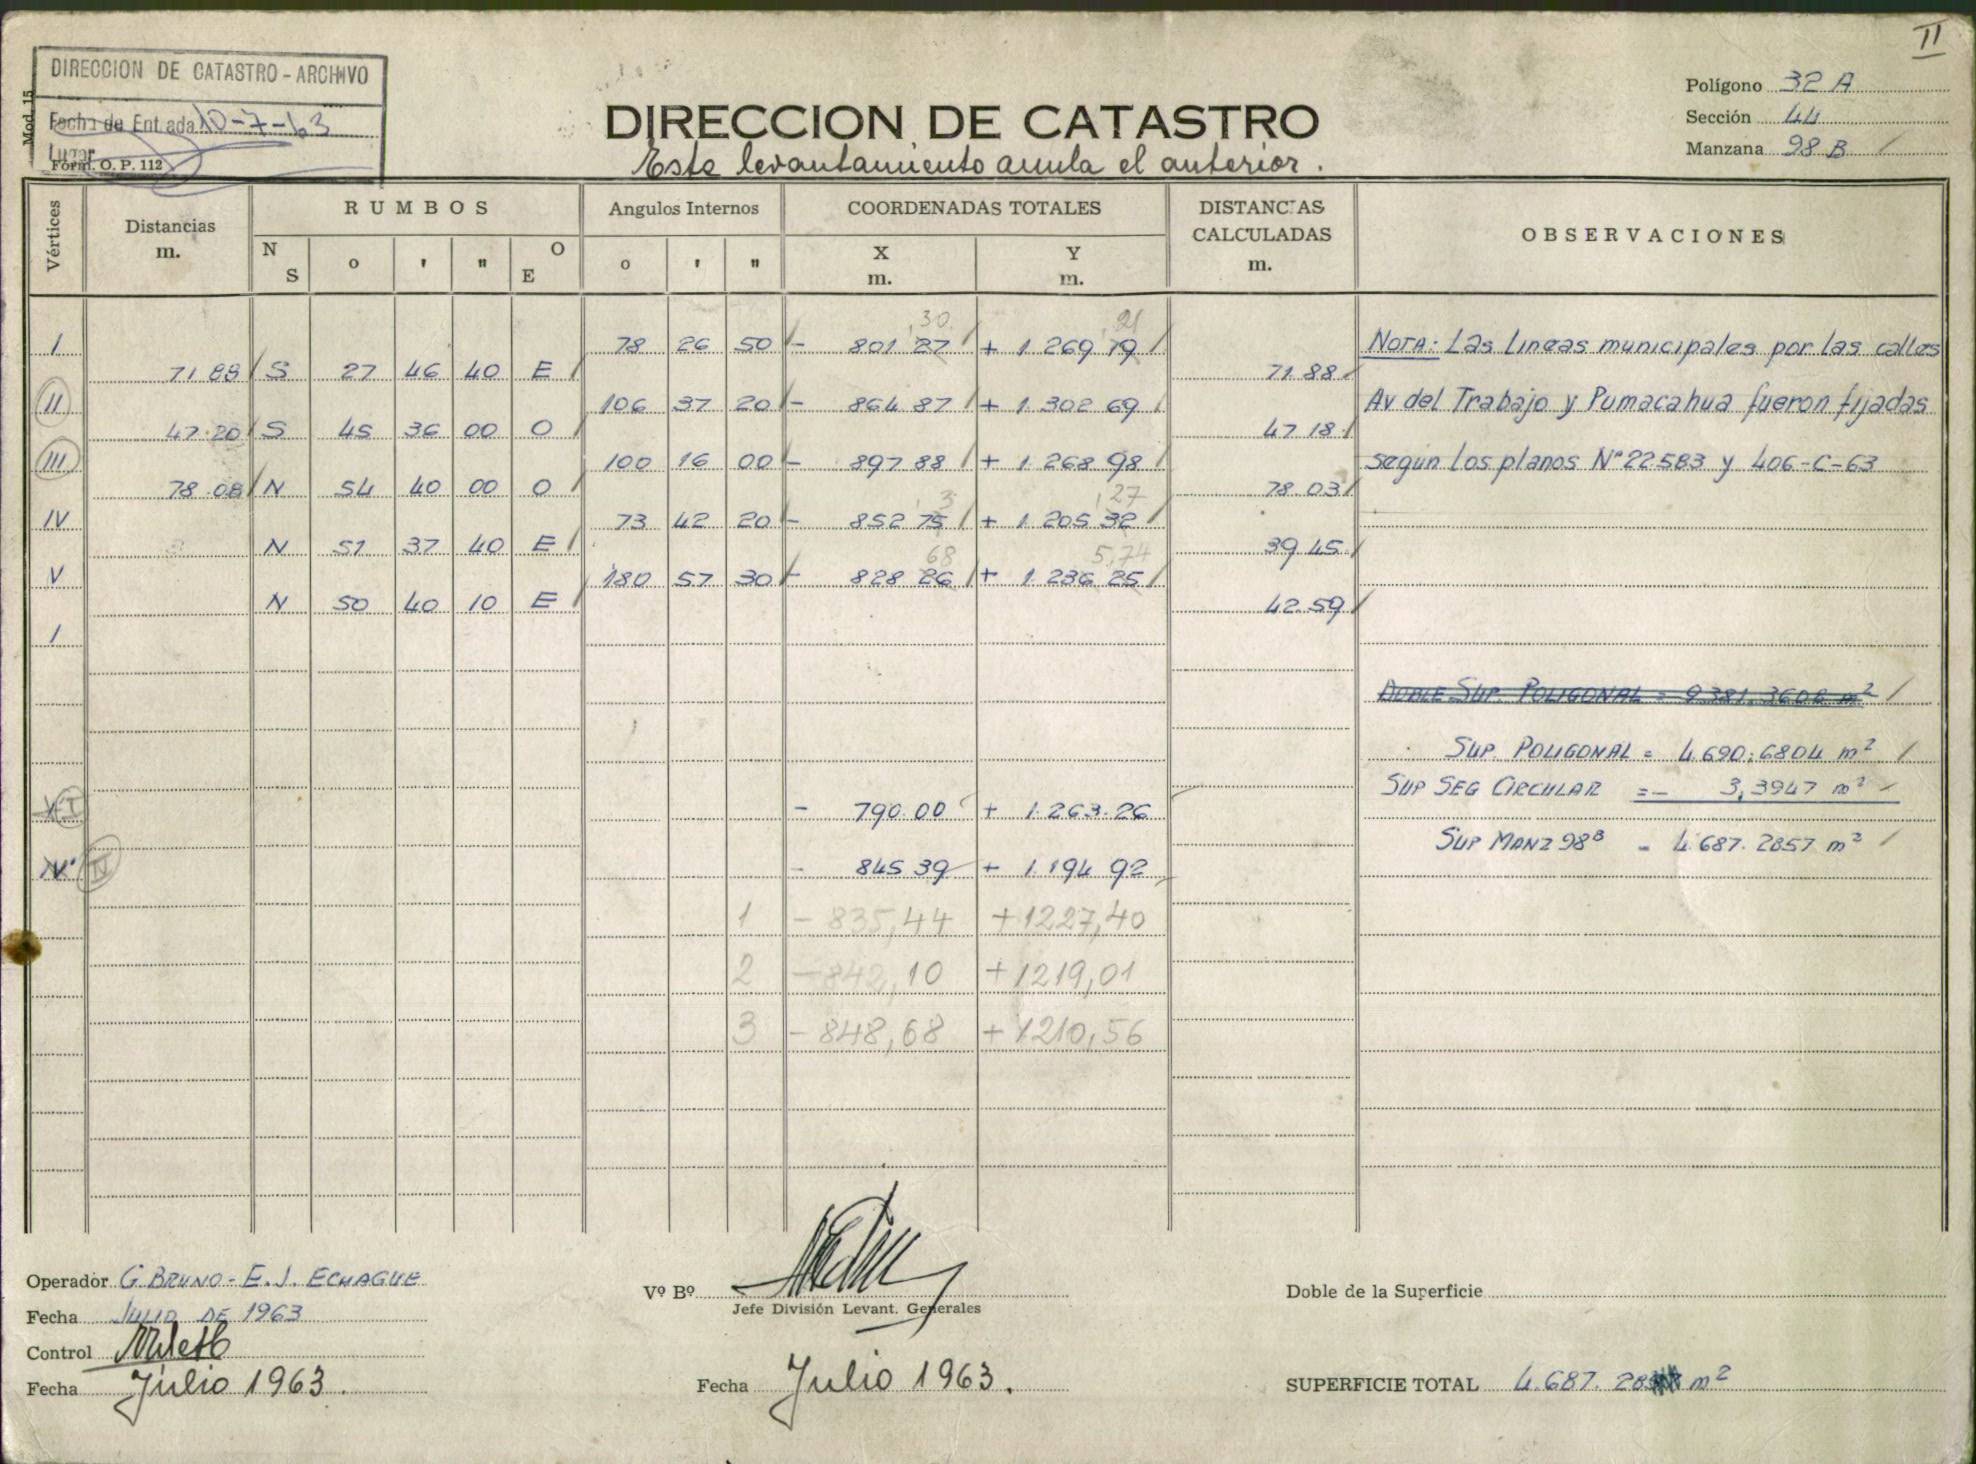 II
DIRECCION DE CATASTRO - ARCHIVO
Fecha de Entrada 10-7-63
Lugar
Mod. 15
Form. O. P. 112
DIRECCION DE CATASTRO
Este levantamiento anula el anterior.
Polígono 32 A
Sección 44
Manzana 98 B
Vértices
Distancias
m.
RUMBOS
N S
o ' "
O E
Angulos Internos
o ' "
COORDENADAS TOTALES
X
m.
Y
m.
DISTANCIAS
CALCULADAS
m.
OBSERVACIONES
,30 ,21
I 78 26 50 - 801 27 + 1.269 19
71 88 S 27 46 40 E 71.88
II 106 37 20 - 864 87 + 1.302 69
47.20 S 45 36 00 O 47 18
III 100 16 00 - 897 88 + 1.268 98
78.08 N 54 40 00 O 78.03
,3 ,27
IV 73 42 20 - 852 75 + 1.205 32
N 51 37 40 E 39 45
68 5,74
V 180 57 30 - 828 26 + 1.236 25
N 50 40 10 E 42.59
I
I - 790.00 + 1.263.26
IV - 845 39 + 1.194 92
1 - 835,44 + 1227,40
2 - 842,10 + 1219,01
3 - 848,68 + 1210,56
NOTA: Las lineas municipales por las calles
Av del Trabajo y Pumacahua fueron fijadas
segun los planos N° 22.583 y 406-C-63
DOBLE SUP. POLIGONAL = 9.381.3608 m²
SUP. POLIGONAL = 4.690.6804 m²
SUP SEG CIRCULAR = - 3,3947 m²
SUP MANZ 98B = 4.687.2857 m²
Operador G. BRUNO - E. J. ECHAGUE
Fecha JULIO DE 1963
Control
Fecha Julio 1963.
Vº Bº
Jefe División Levant. Generales
Fecha Julio 1963.
Doble de la Superficie
SUPERFICIE TOTAL 4.687. 28 m²